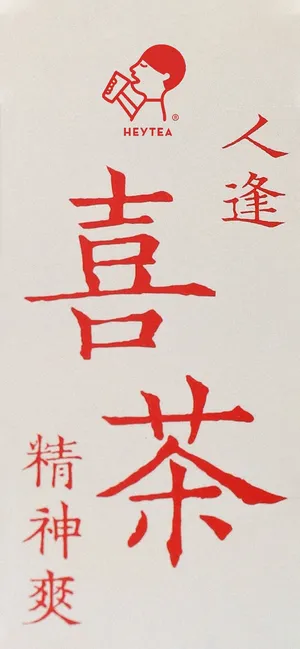 HEYTEA
人逢
喜茶
精神爽